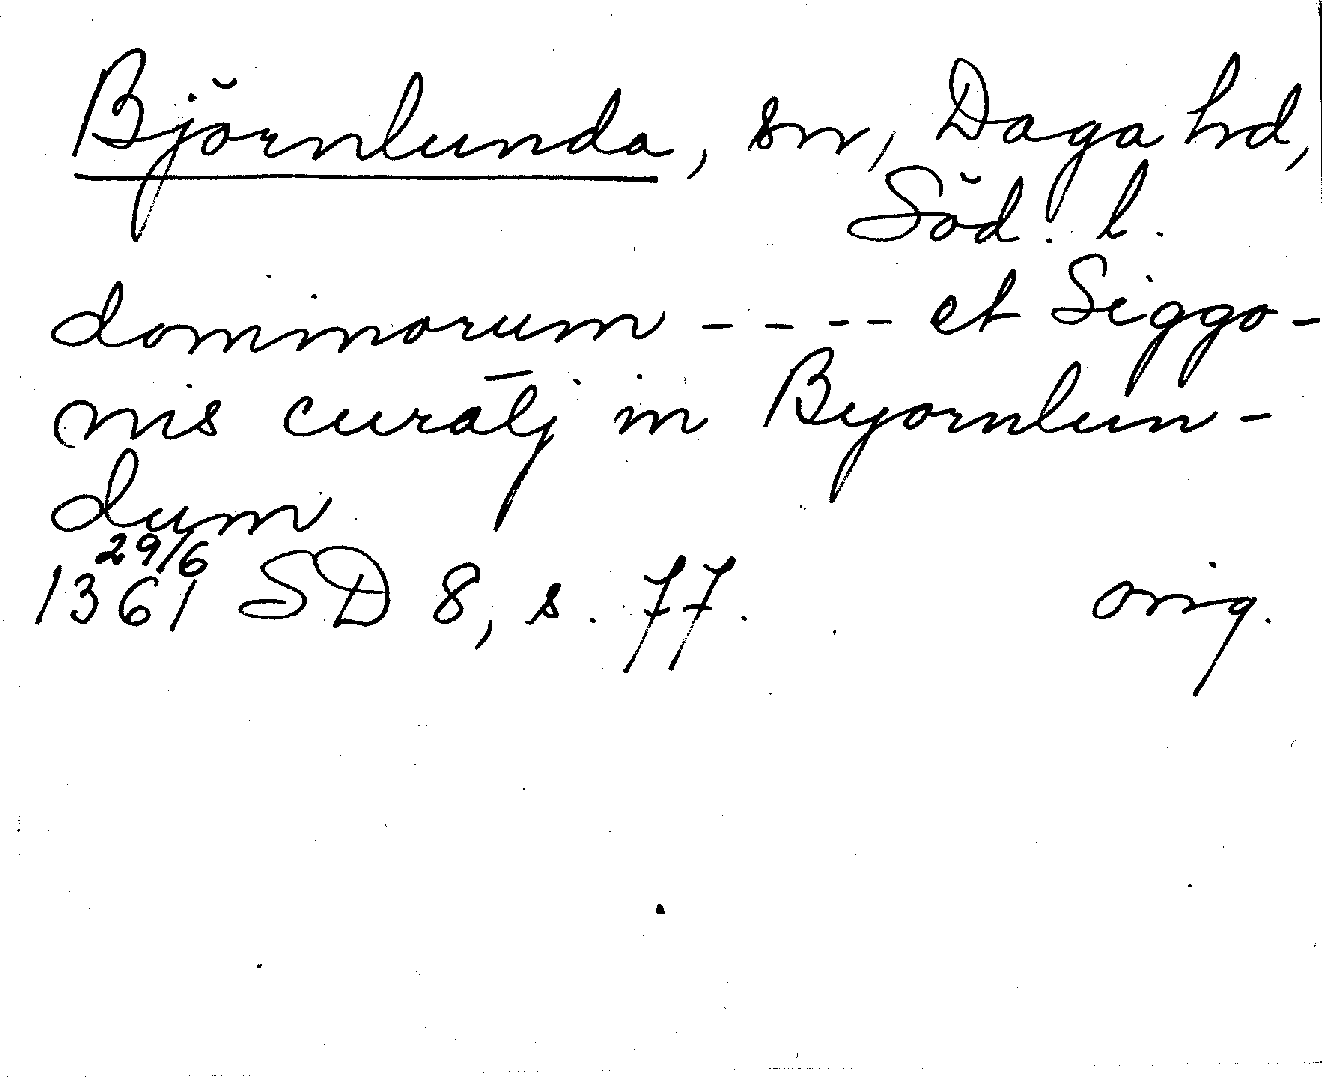 Björnlunda, sn, Daga hd,
Söd. l.
dominorum - - - - et Siggo-
nis curātj in Byornlun-
dum
29/6
1361 SD 8, s. 77. orig.